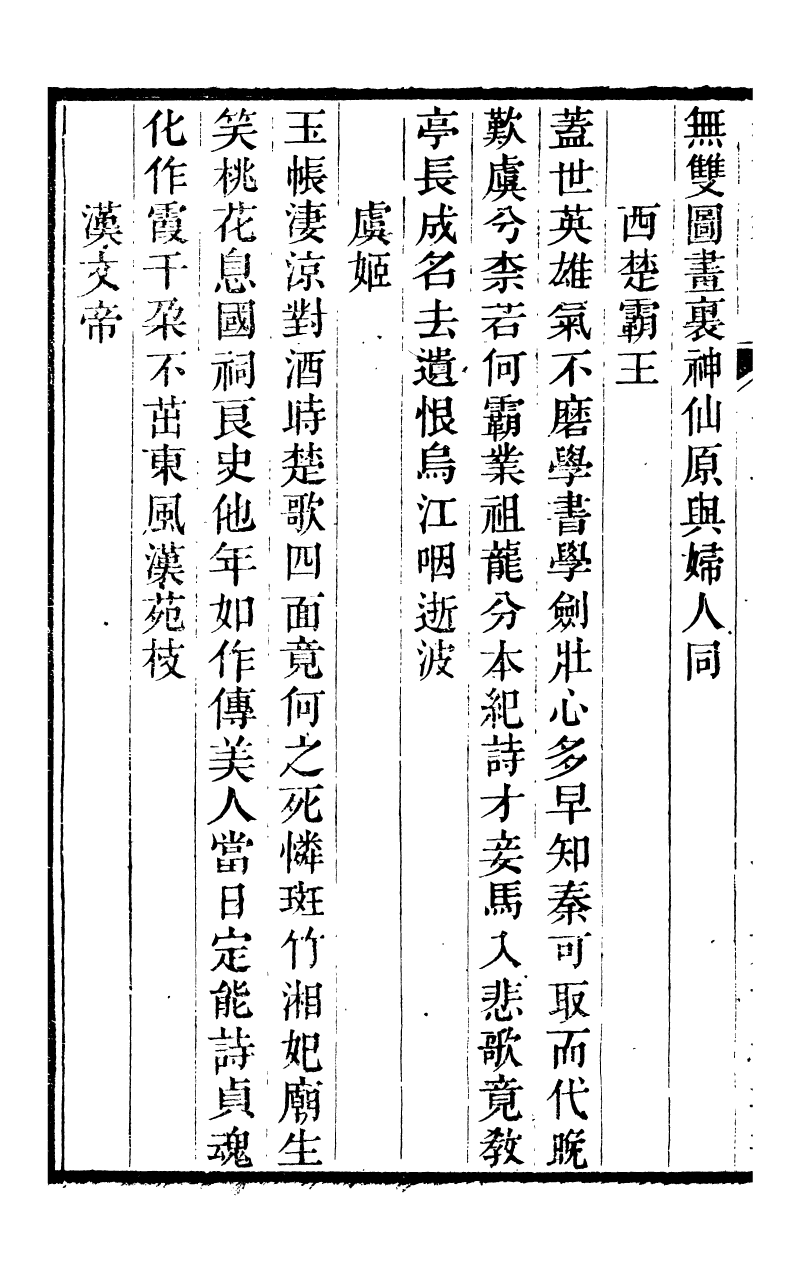 無雙圖畫裏神仙原與婦人同
西楚霸王
蓋世英雄氣不磨學書學劍壯心多早知秦可取而代晚
歎虞兮柰若何霸業祖龍分本紀詩才妾馬入悲歌竟敎
亭長成名去遺恨烏江咽逝波
虞姬
玉帳淒涼對酒時楚歌四面竟何之死憐斑竹湘妃廟生
笑桃花息國祠良史他年如作傳美人當日定能詩貞魂
化作霞千朶不茁東風漢苑枝
漢文帝